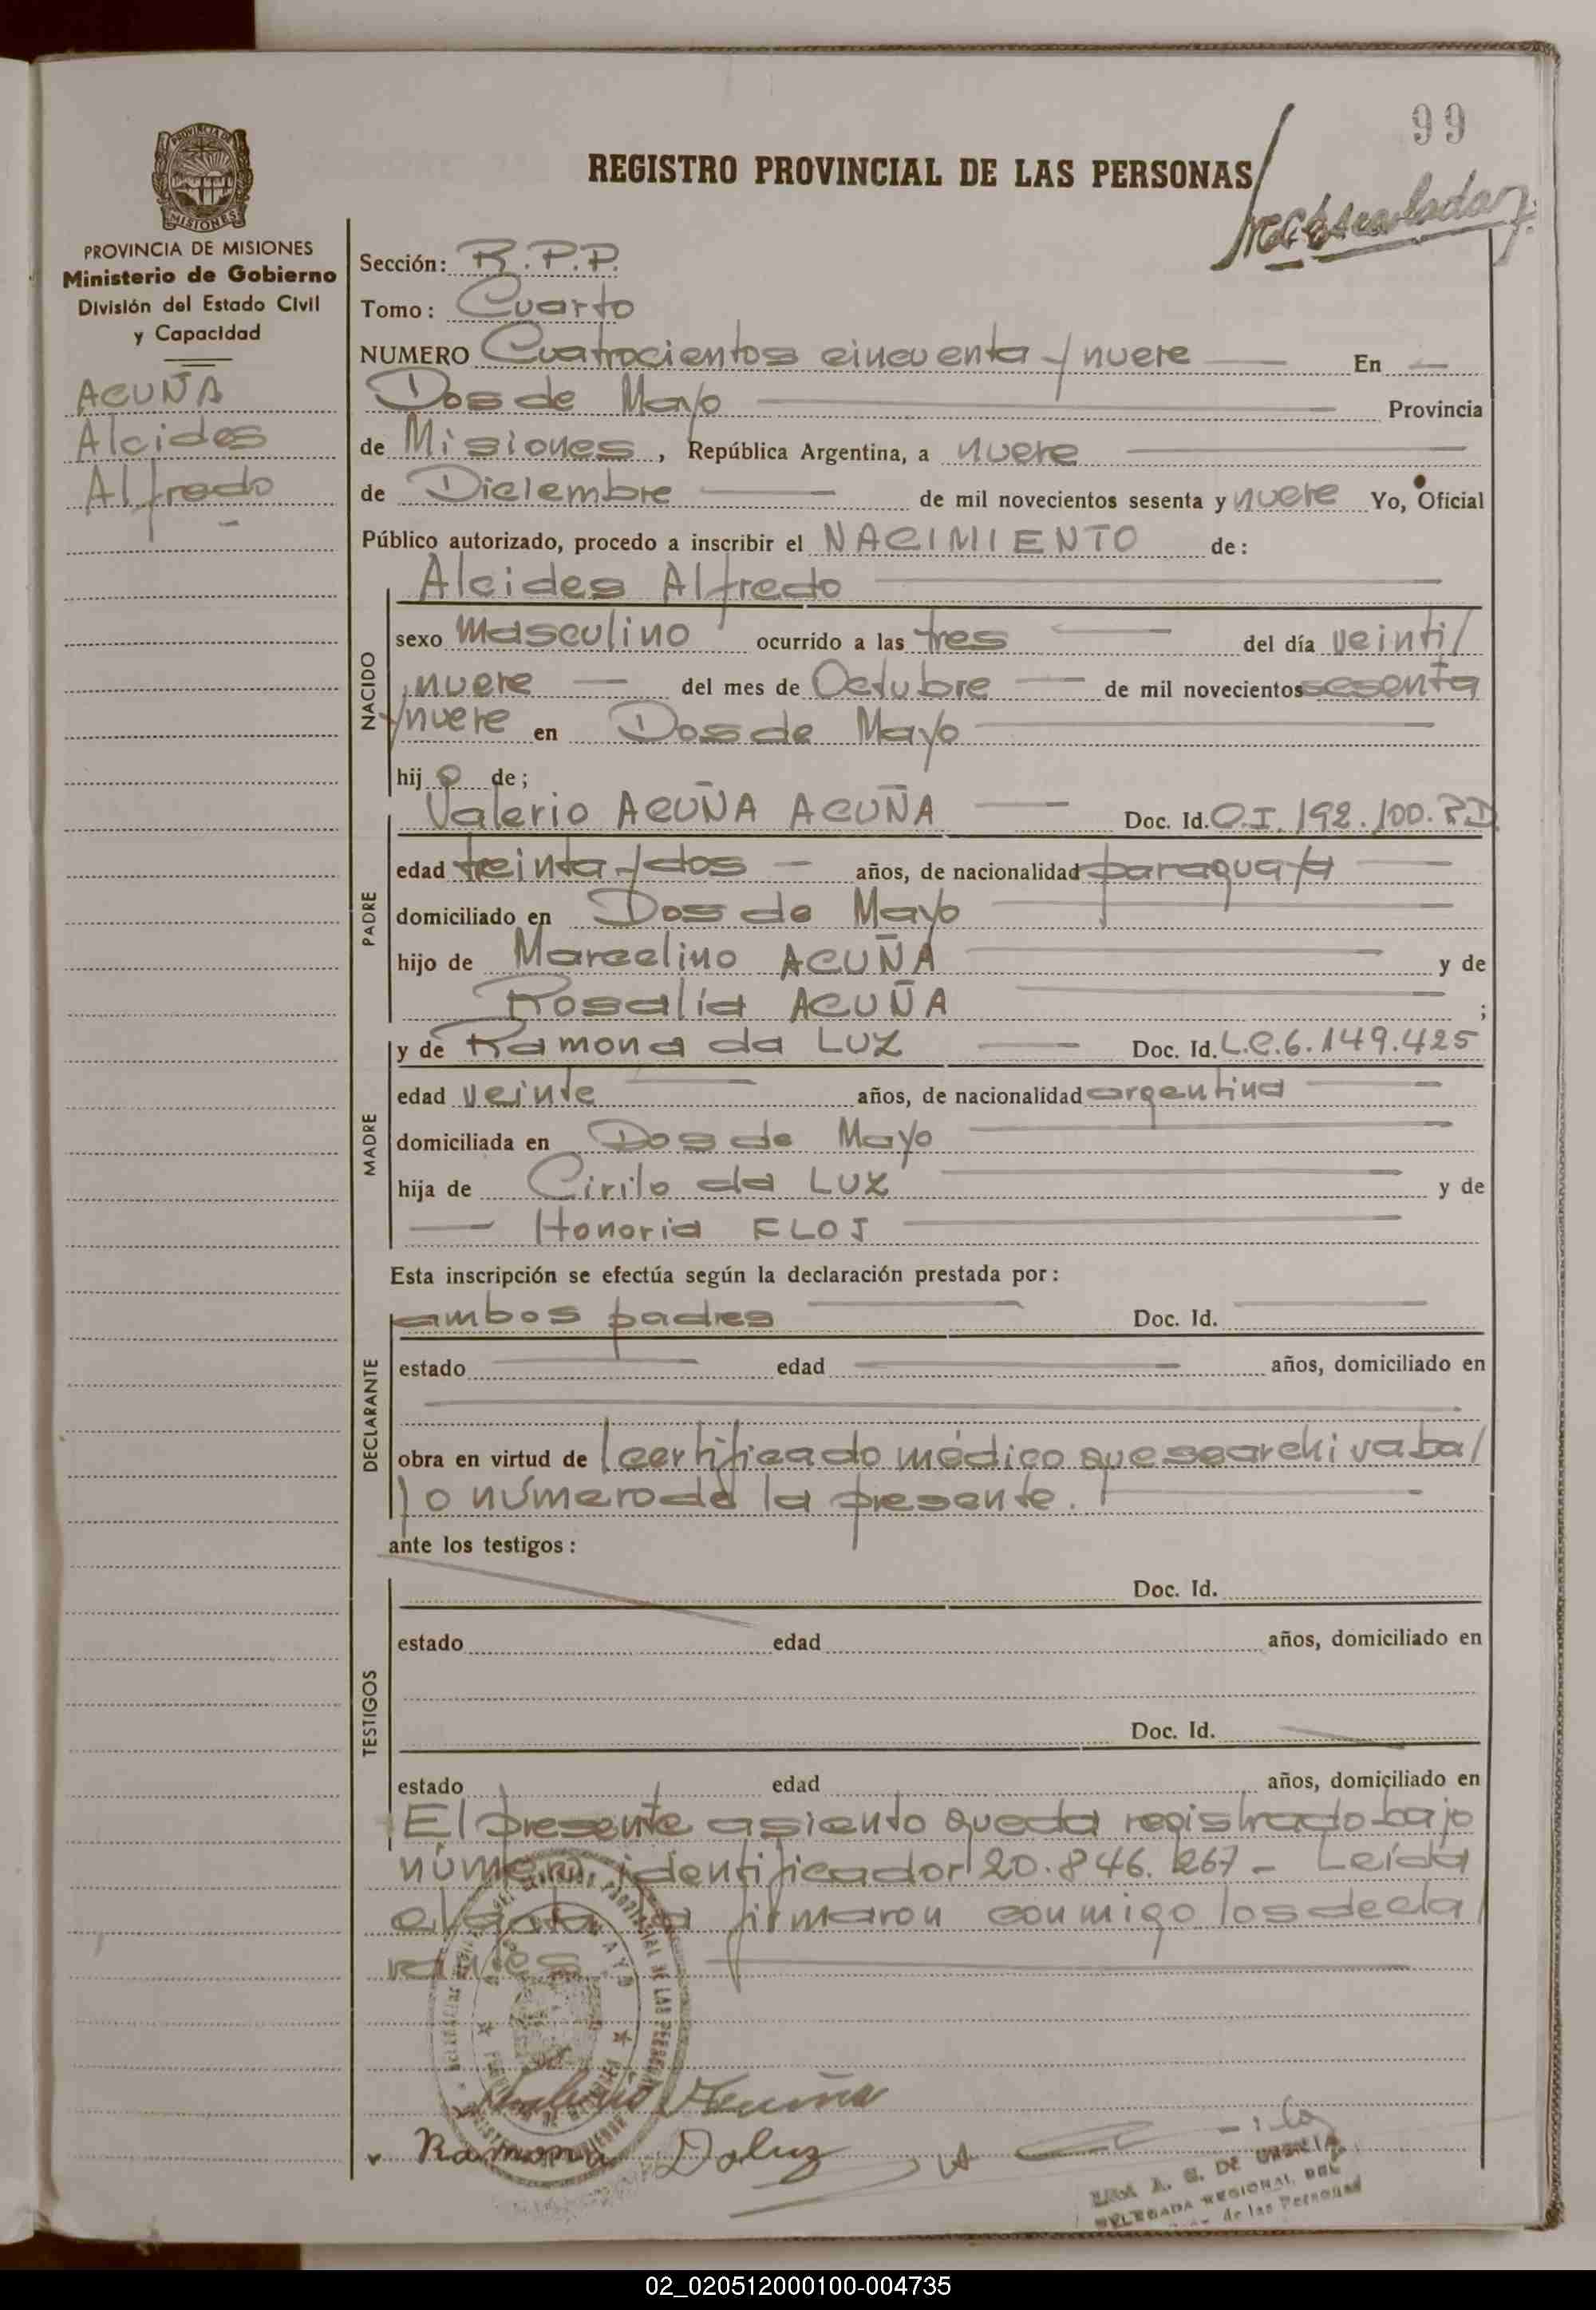 99
REGISTRO PROVINCIAL DE LAS PERSONAS
PROVINCIA DE
MISIONES
PROVINCIA DE MISIONES
Ministerio de Gobierno
División del Estado Civil
y Capacidad
ACUÑA
Alcides
Alfredo
Sección: R.P.P.
Tomo: Cuarto
NUMERO Cuatrocientos cincuenta y nueve En
Dos de Mayo Provincia
de Misiones, República Argentina, a nueve
de Diciembre de mil novecientos sesenta y nueve Yo, Oficial
Público autorizado, procedo a inscribir el NACIMIENTO de:
Alcides Alfredo
NACIDO
sexo masculino ocurrido a las tres del día veinti/
nueve del mes de Octubre de mil novecientos sesenta
y nueve en Dos de Mayo
hijo de;
PADRE
Valerio ACUÑA ACUÑA Doc. Id. C.I. 192.100. P.D
edad treinta y dos años, de nacionalidad paraguaya
domiciliado en Dos de Mayo
hijo de Marcelino ACUÑA y de
Rosalía ACUÑA ;
MADRE
y de Ramona da LUZ Doc. Id. L.C.6.149.425
edad veinte años, de nacionalidad argentina
domiciliada en Dos de Mayo
hija de Cirilo da LUZ y de
Honoria FLOJ
Esta inscripción se efectúa según la declaración prestada por:
DECLARANTE
ambos padres Doc. Id.
estado edad años, domiciliado en
obra en virtud de certificado médico que se archiva ba/
jo número de la presente.
ante los testigos:
TESTIGOS
Doc. Id.
estado edad años, domiciliado en
Doc. Id.
estado edad años, domiciliado en
El presente asiento queda registrado bajo
número identificador 20.846.267- Leída
el acta la firmaron conmigo los decla/
rantes.
Valerio Acuña
Ramona Daluz
A. G. DE
DELEGADA REGIONAL DEL
de las Personas
02_020512000100-004735